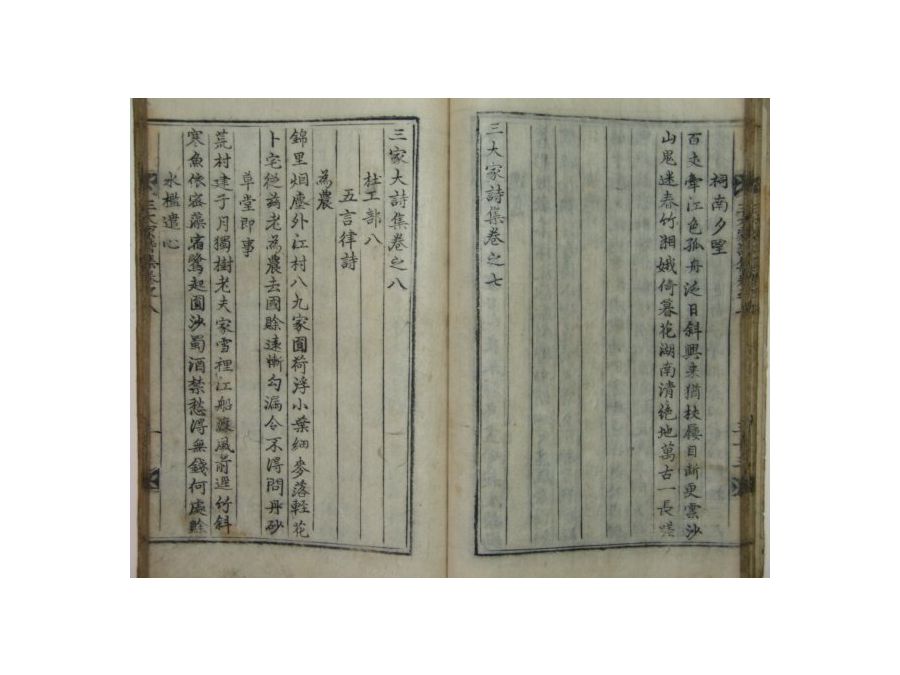 祠南夕望
百丈牽江色孤舟泛日斜興來猶杖屨目斷更雲沙
山鬼迷春竹湘娥倚暮花湖南清絶地萬古一長嗟
三大家詩集卷之七
三家大詩集卷之八
杜工部八
五言律詩
為農
錦里烟塵外江村八九家圓荷浮小葉細麥落軽花
卜宅從玆老為農去國賖遠慚勾漏令不得問丹砂
草堂即事
荒村建子月獨樹老夫家雪裡江船渡風前逕竹斜
寒魚依密藻宿鷺起圓沙蜀酒禁愁得無錢何處賖
水檻遣心